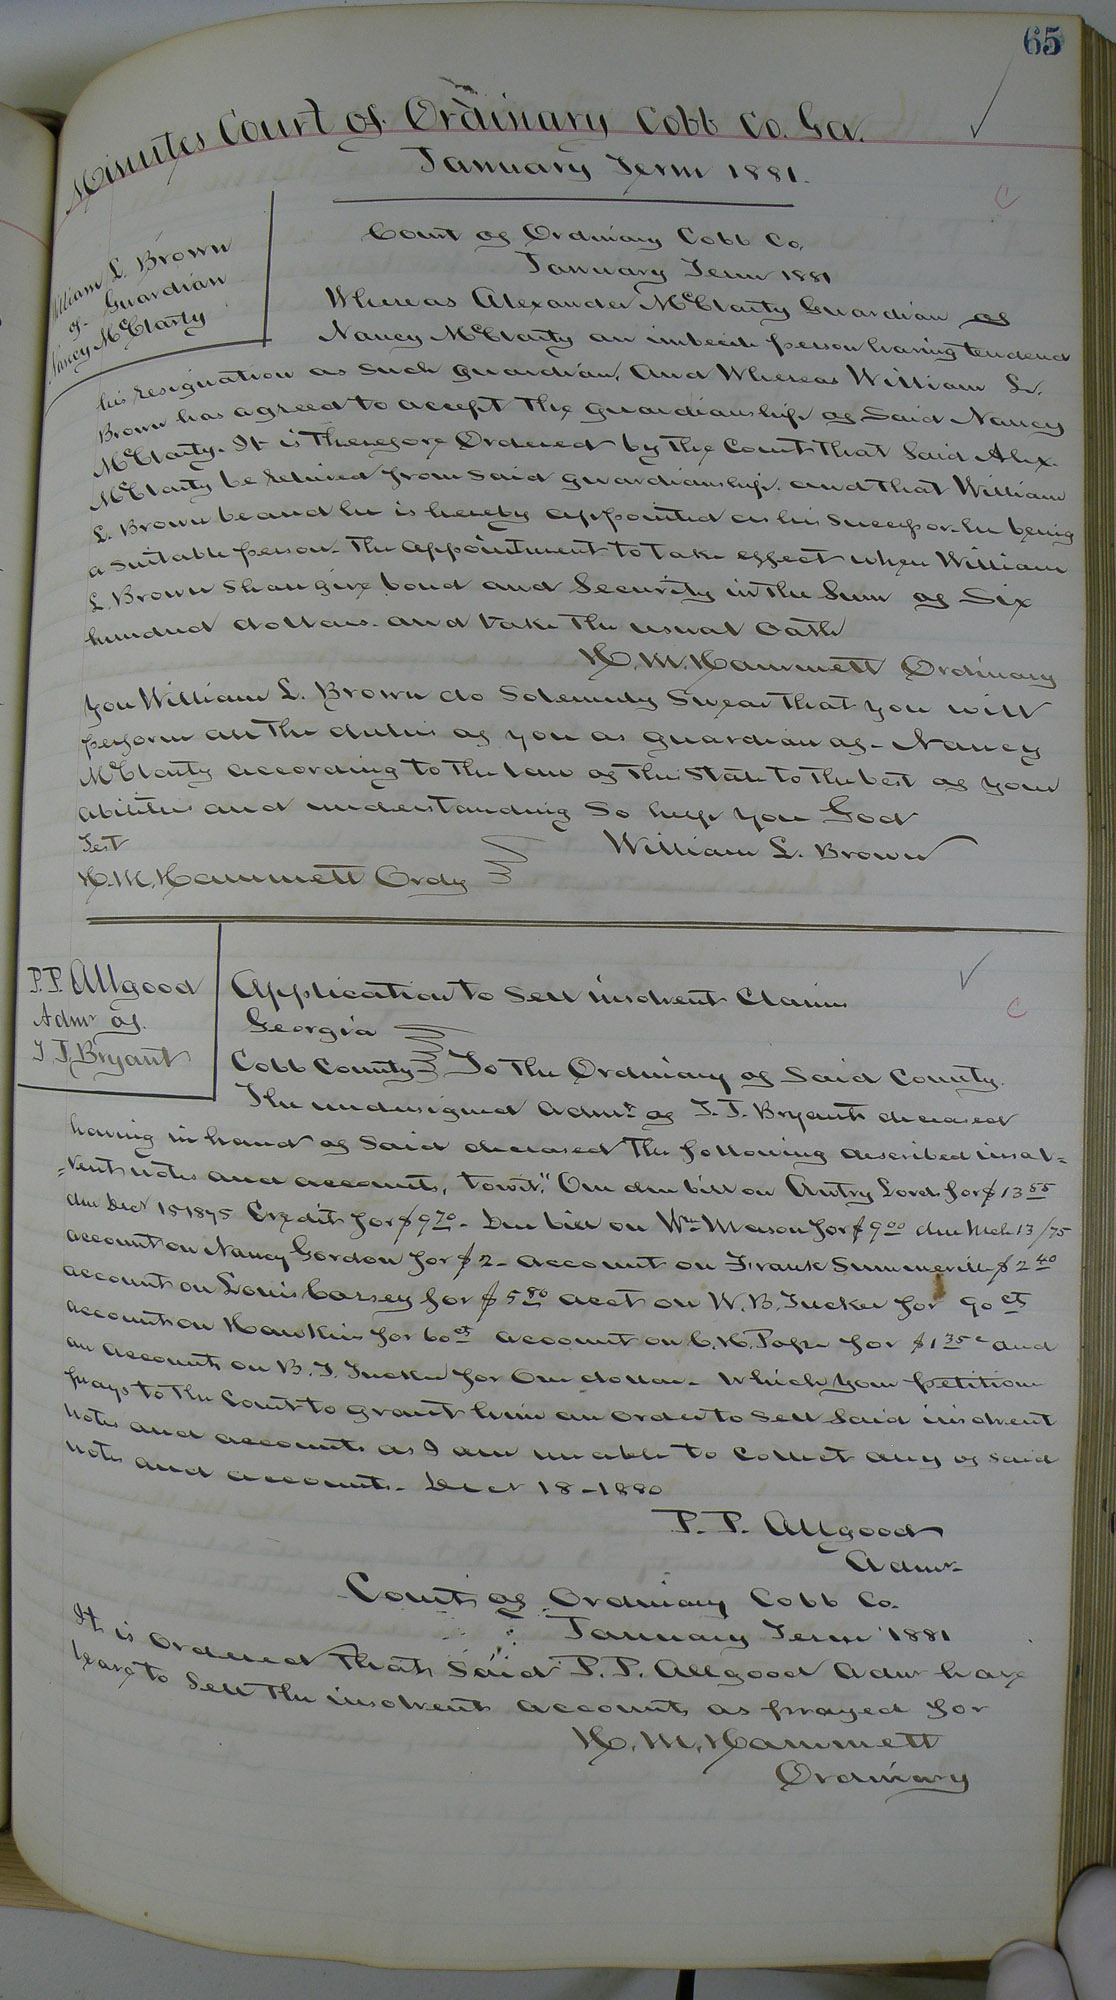 65
Minutes Court of Ordinary Cobb Co. Ga.
January Term 1881.
William L. Brown
Guardian
of
Nancy McClarty
Court of Ordinary Cobb Co.
January Term 1881
Whereas Alexander McClarty Guardian of
Nancy McClarty an imbecile person having tendend
his resignation as such guardian. And Whereas William L.
Brown has agreed to accept the guardianship of said Nancy
McClarty. It is Therefore Ordered by the Court that Said Alex.
McClarty be relieved from said guardianship. and that William
L. Brown be and he is hereby appointed as his successor. he being
a suitable person. The appointment to take effect when William
L. Brown shall give bond and Security in the Sum of Six
hundred dollars. and take the usual oath
H. M. Hammett Ordinary
You William L. Brown do Solemnly Swear that you will
perform all the duties of you as guardian of Nancy
McClarty according to the law of this State to the best of your
abilities and understanding So help you God
Test
William L. Brown
H. M. Hammett Ordy
P. P. Allgood
Admr of
T J Bryant
Application to Sell insolvent Claims
Georgia
Cobb County To the Ordinary of Said County.
The undersigned Admr of T. J. Bryant deceased
having in hand of said deceased the following described insol-
vent notes and accounts, towit: One due bill on Autry Lord for $13 55
due Decr 15 1875 Credit for $9 70. Due bill on Wm Mason for $9 00 due Mch 13/75
account on Nancy Gordon for $2 - account on Frank Summerill $2 40
account on Louis Carsey for $5 80 acct on W. B. Tucker for 90 cts
account on Hawkins for 60 cts account on C. H. Pope for $1 35 c and
an account on B. T. Tucker for One dollar. Which your petitioner
prays to the Court to grant him an order to sell said insolvent
notes and accounts as I am unable to collect any of said
notes and accounts. Decr 18-1880
P. P. Allgood
Admr
Court of Ordinary Cobb Co.
January Term 1881
It is ordered that said P. P. Allgood Admr have
leave to Sell the insolvent accounts as prayed for
H. M. Hammett
Ordinary